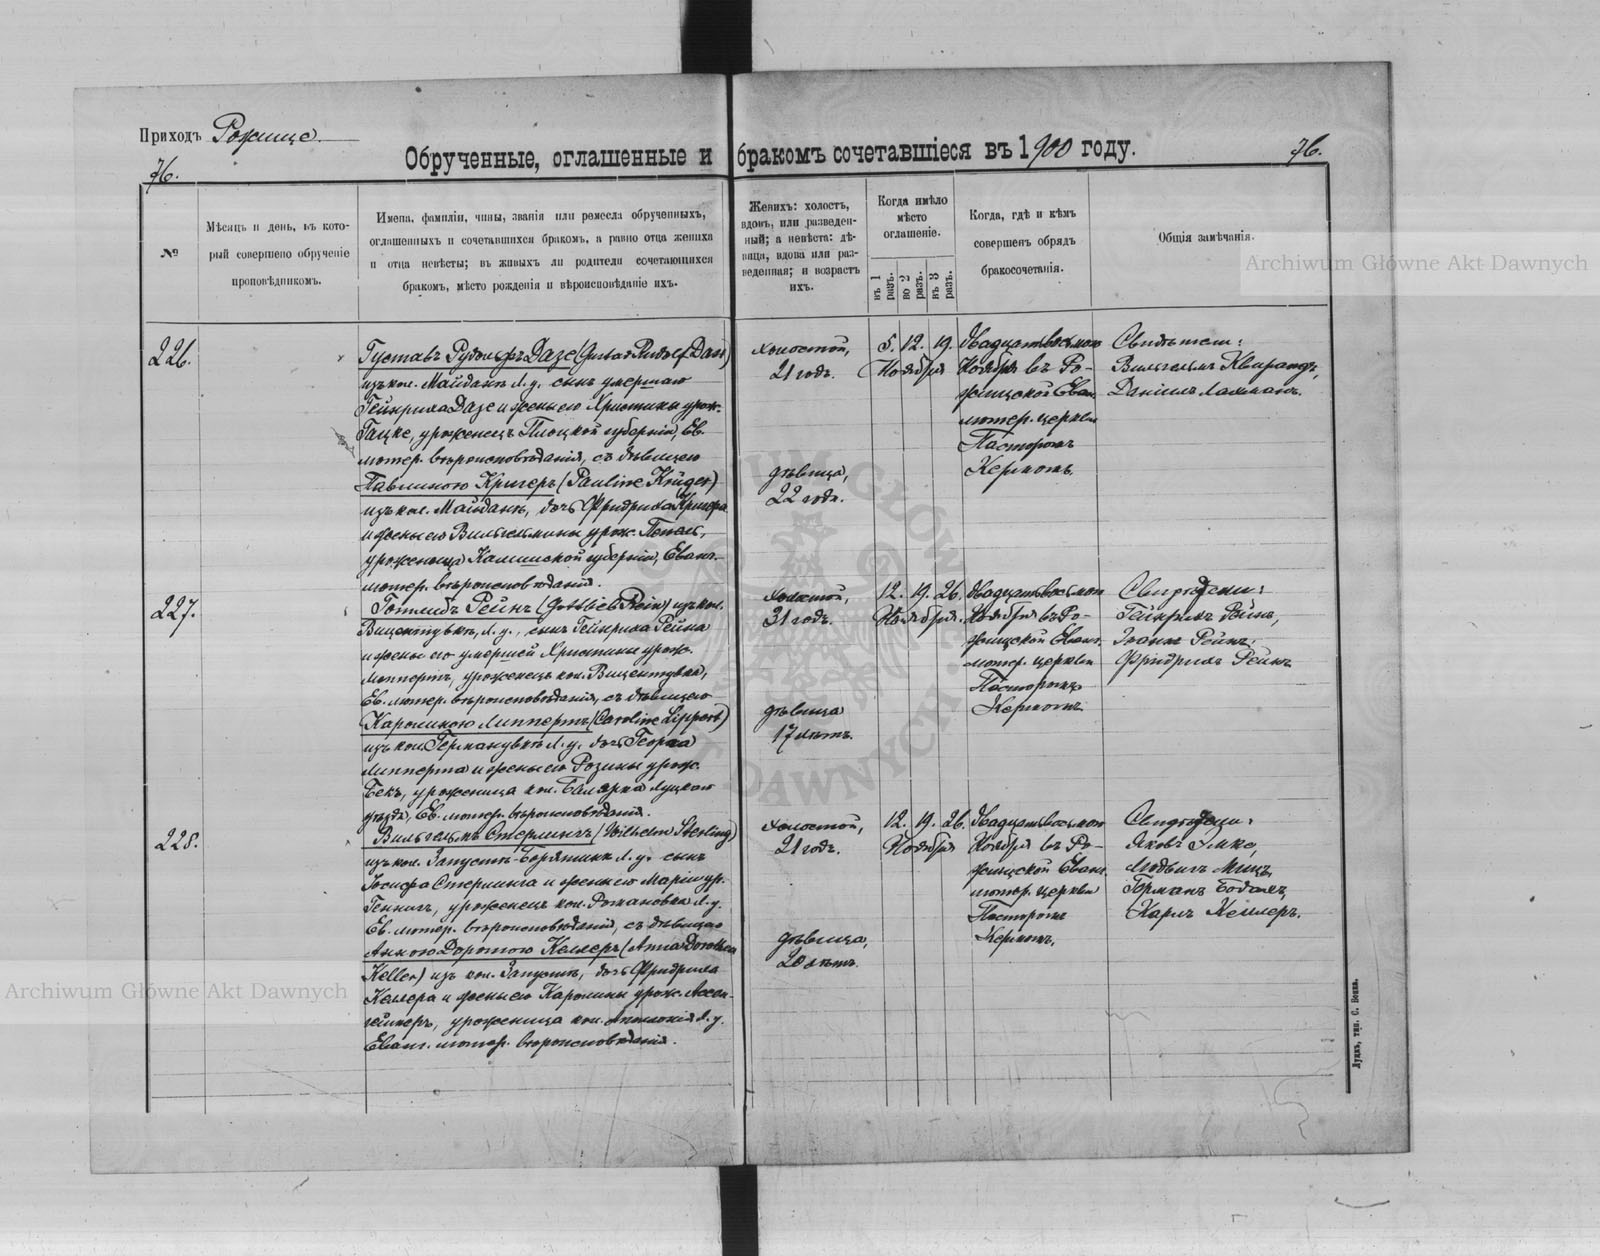 Приходъ Рожище.
76.
Обрученные, оглашенные и бракомъ сочетавшіеся въ 1900 году.
76.
№
Мѣсяцъ и день, въ кото-
рый совершено обрученіе
проповѣдникомъ.
Имена, фамиліи, чины, званія или ремесла обрученныхъ,
оглашенныхъ и сочетавшихся бракомъ, а равно отца жениха
и отца невѣсты; въ живыхъ ли родители сочетающихся
бракомъ, мѣсто рожденія и вѣроисповѣданіе ихъ.
Женихъ: холостъ,
вдовъ, или разведен-
ный; а невѣста: дѣ-
вица, вдова или раз-
веденная; и возрастъ
ихъ.
Когда имѣло
мѣсто
оглашеніе.
въ 1 разъ.
во 2 разъ.
въ 3 разъ.
Когда, гдѣ и кѣмъ
совершенъ обрядъ
бракосочетанія.
Общія замѣчанія.
Archiwum Główne Akt Dawnych
226.
Густавъ Рудольфъ Дазе (Gustav Rudolf Dase)
изъ кол. Майданъ Л. у. сынъ умершаго
Гейнриха Дазе и жены его Христины урож.
Гацке, уроженецъ Плоцкой губерніи, Ев.
лютер. вѣроисповѣданія, съ дѣвицею
Павлиною Кригеръ (Pauline Krüger)
изъ кол. Майданъ, дочь Фридриха Кригера
и жены его Вильгельмины урож.
уроженица Калишской губерніи, Еванг.-
лютер. вѣроисповѣданія.
холостой,
21 годъ.
дѣвица,
22 года.
5. 12. 19.
Ноября
Двадцатьвосьмого
Ноября въ Ро-
жищской Еванг.
лютер. церкви
Пасторомъ
Кермомъ.
Свидѣтели:
Вильгельмъ
Даніилъ Лахманъ.
227.
Готлибъ Рейнъ (Gottlieb Rein) изъ кол.
Вицентувкъ, Л. у., сынъ Гейнриха Рейна
и жены его умершей Христины урож.
Липпертъ, уроженецъ кол. Вицентувка,
Ев. лютер. вѣроисповѣданія, съ дѣвицею
Каролиною Липпертъ (Caroline Lippert)
изъ кол. Германувкъ Л. у. дочь Георга
Липперта и жены его Розины урож.
Бекъ, уроженица кол. Балярка Луцкаго
уѣзда, Ев. лютер. вѣроисповѣданія.
холостой,
31 годъ.
дѣвица
17 лѣтъ.
12. 19. 26.
Ноября.
Двадцатьвосьмого
Ноября въ Ро-
жищской Еванг.
лютер. церкви
Пасторомъ
Кермомъ
Свидѣтели:
Гейнрихъ Рейнъ,
Іоганъ Рейнъ,
Фридрихъ Рейнъ
228.
Вильгельмъ Стерлингъ (Wilhelm Sterling)
изъ кол. Запустъ-Борятинъ Л. у. сынъ
Іосифа Стерлинга и жены его Маріи ур.
Геннигъ, уроженецъ кол. Романовка Л. у.
Ев. лютер. вѣроисповѣданія, съ дѣвицею
Анною Доротою Келлеръ (Anna Dorothea
Keller) изъ кол. Запустъ, дочь Фридриха
Келлера и жены его Каролины урож. Ассен-
геймеръ, уроженица кол. Л. у.
Еванг. лютер. вѣроисповѣданія.
холостой,
21 годъ.
дѣвица,
20 лѣтъ.
12. 19. 26.
Ноября
Двадцатьвосьмого
Ноября въ Ро-
жищской Еванг.
лютер. церкви
Пасторомъ
Кермомъ.
Свидѣтели:
Яковъ
Людвигъ
Германъ
Карлъ Келлеръ.
Archiwum Główne Akt Dawnych
Луцкъ, тип. С. Бонка.